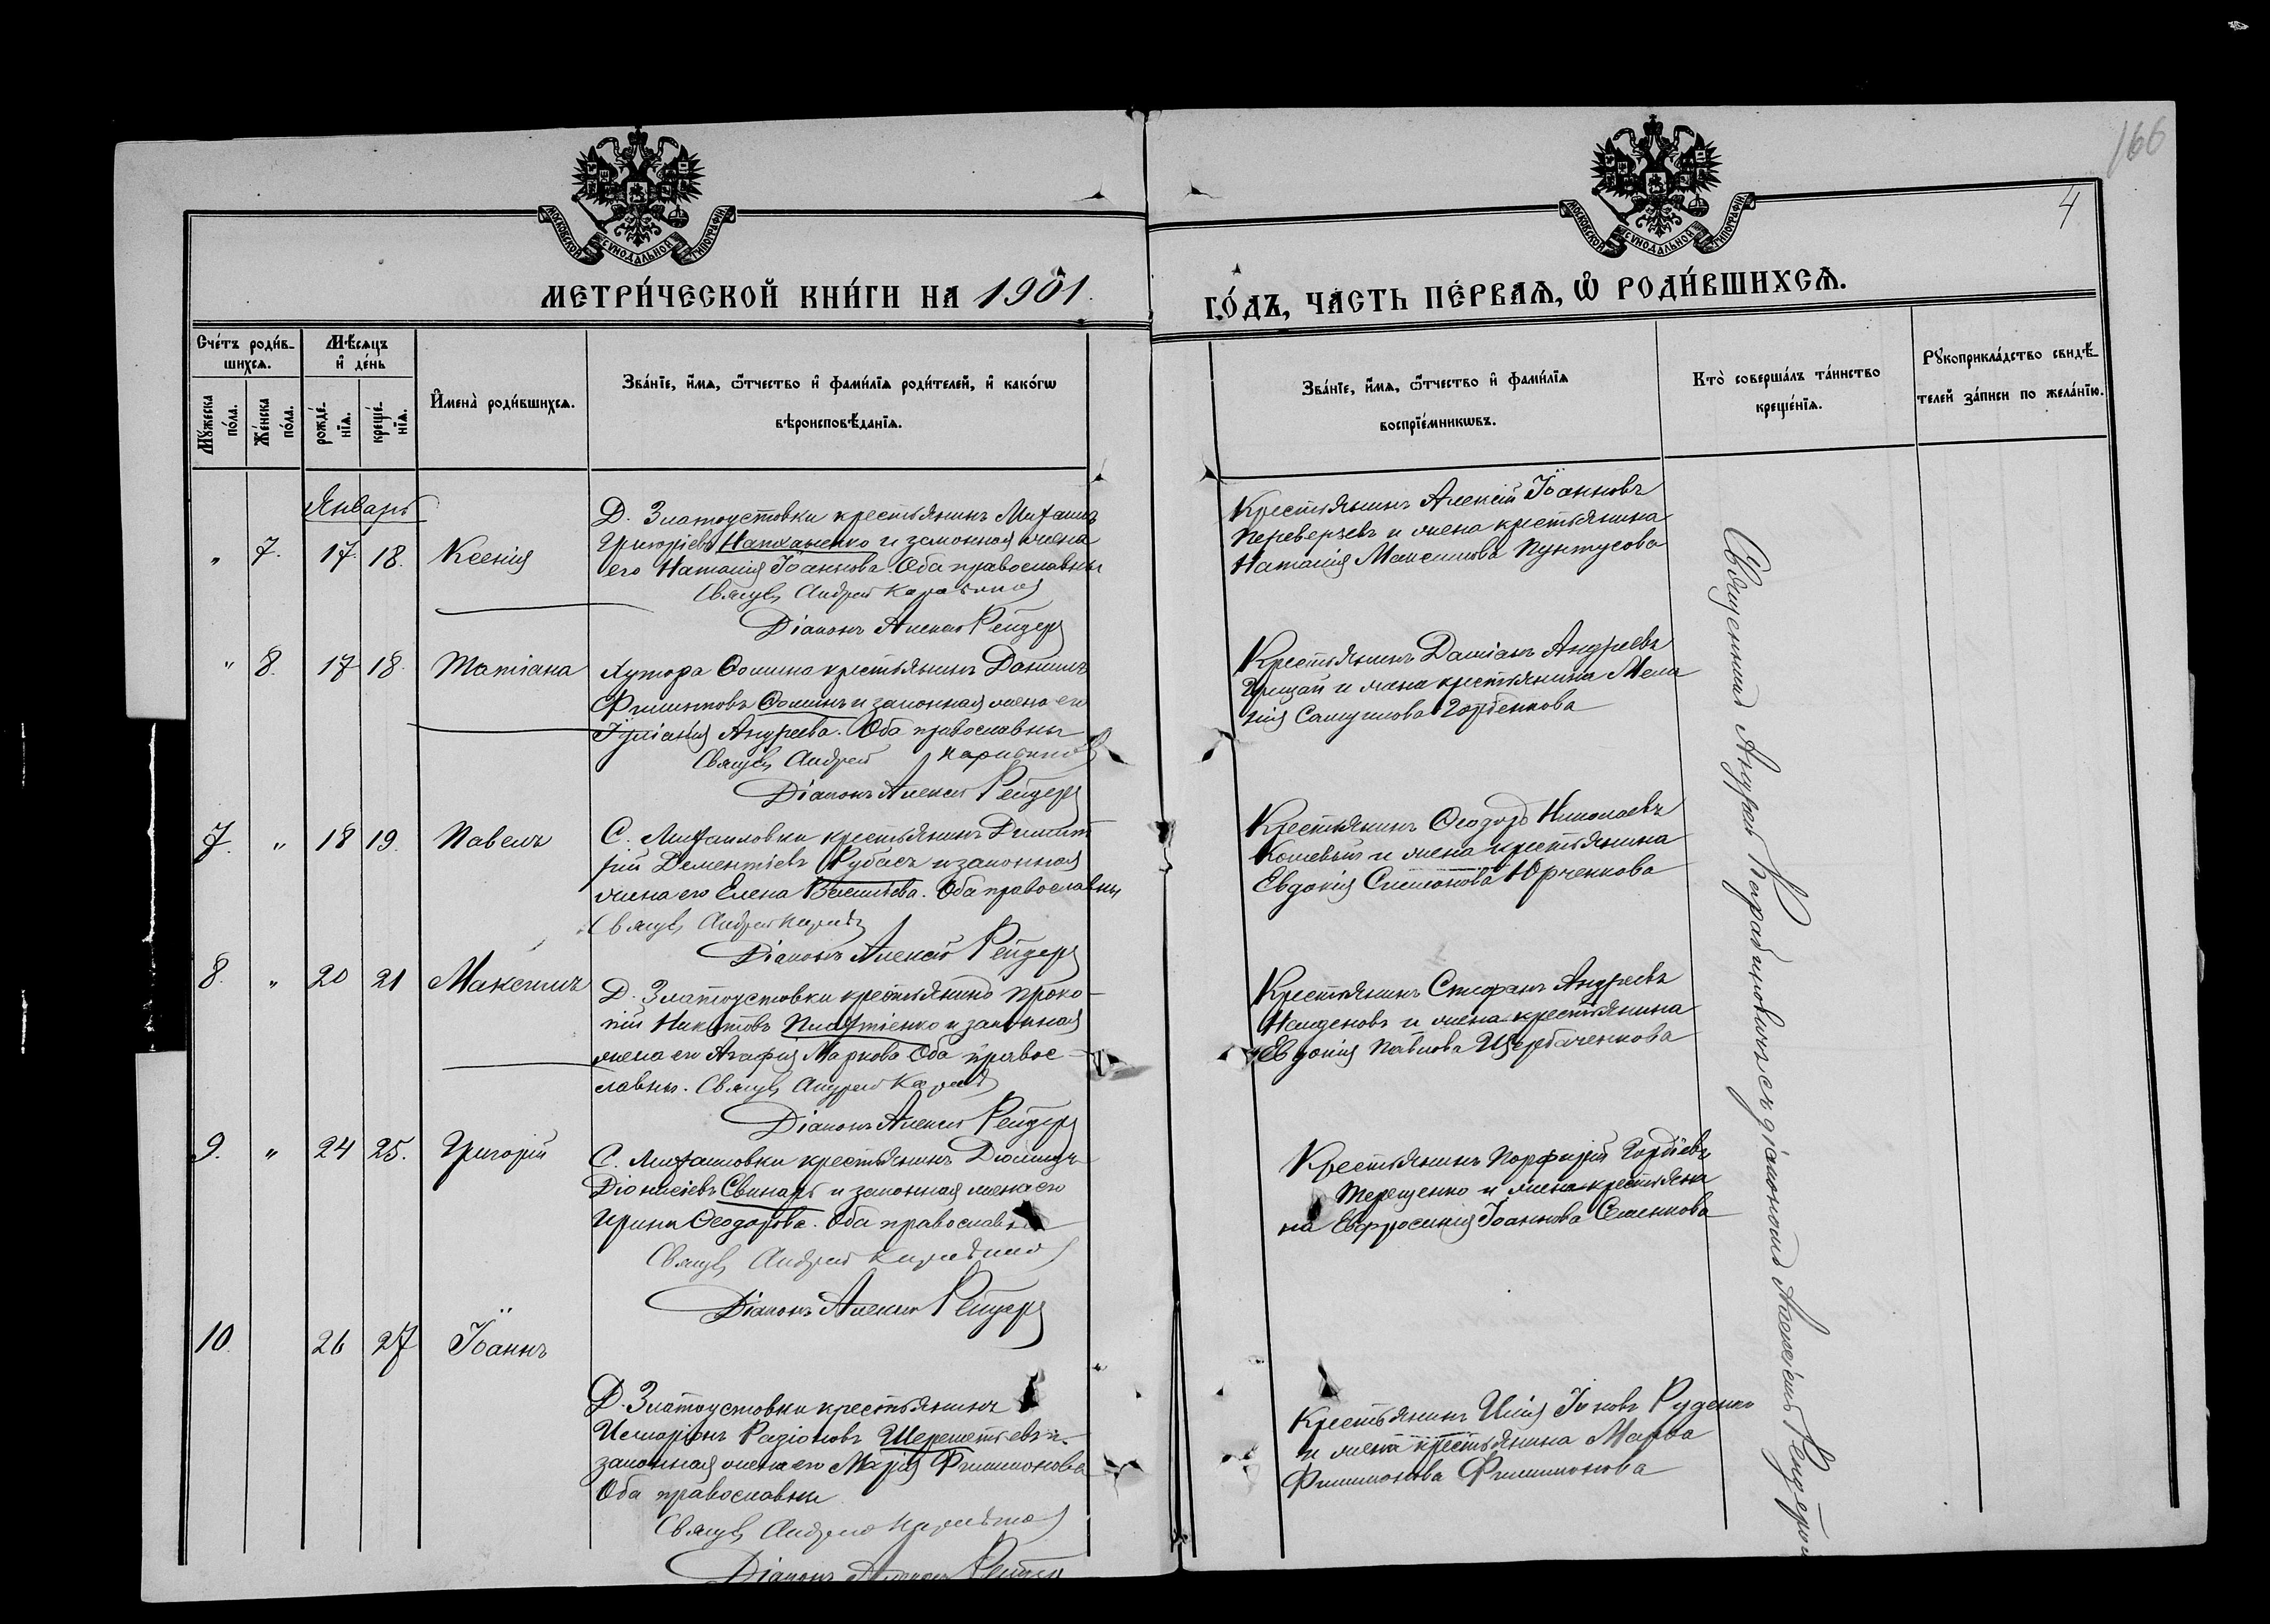 166
4
МОСКОВСКОЙ СѴНОДАЛЬНОЙ ТИПОГРАФІИ
МОСКОВСКОЙ СѴНОДАЛЬНОЙ ТИПОГРАФІИ
МЕТРИ́ЧЕСКОЙ КНИ́ГИ НА 1901.
ГО́ДЪ, ЧА́СТЬ ПЕ́РВАѦ, Ѡ РОДИ́ВШИХСѦ.
Сче́тъ роди́в-
шихсѧ.
Мꙋ́жеска
по́ла.
Же́нска
по́ла.
Мѣ́сѧцъ
и҆ де́нь
рожде́-
нїѧ.
креще́-
нїѧ.
И҆мена̀ роди́вшихсѧ.
Зва́нїе, и҆́мѧ, ѻ҆́тчество и҆ фами́лїѧ роди́телей, и҆ како́гѡ
вѣроисповѣ́данїѧ.
Зва́нїе, и҆́мѧ, ѻ҆́тчество и҆ фами́лїѧ
воспрїе́мникѡвъ.
Кто̀ соверша́лъ та́инство
креще́нїѧ.
Рꙋкоприкла́дство свидѣ́-
телей за́писи по жела́нїю.
Январь
" 7. 17. 18. Ксенія
Д. Златоустовки крестьянинъ Михаилъ
Григоріевъ и законная жена
его Наталія Іоаннова. Оба православны
Свящ. Андрей
Діаконъ Алексій Рейдеръ
Крестьянинъ Алексій Іоанновъ
Переверзевъ и жена крестьянина
Наталія Максимова Пунтусова
" 8. 17 18. Татіана
Хутора Ѳомина крестьянинъ Даніилъ
Филиповъ Ѳоминъ и законная жена его
Іуліанія Андреева. Оба православны
Свящ. Андрей
Діаконъ Алексій Рейдеръ
Крестьянинъ Даміанъ Андреевъ
Грицай и жена крестьянина Мела
нія Самуилова Горбенкова
7. " 18 19. Павелъ
С. Михайловки крестьянинъ Димит
рій Дементіевъ Рубасъ и законная
жена его Елена Васильева. Оба православны
Свящ. Андрей
Діаконъ Алексій Рейдеръ
Крестьянинъ Ѳеодоръ Николаевъ
Кошевый и жена крестьянина
Евдокія Симонова Юрченкова
8. " 20 21 Максимъ
Д. Златоустовки крестьянинъ Проко-
пій Никитовъ и законная
жена его Агафія Маркова Оба право-
славны. Свящ. Андрей
Діаконъ Алексій Рейдеръ
Крестьянинъ Стефанъ Андреевъ
Найденовъ и жена крестьянина
Евдокія Павлова Щербаченкова
9. " 24 25. Григорій
С. Михайловки крестьянинъ
Діонисіевъ Свинарь и законная жена его
Ирина Ѳеодорова. Оба православны
Свящ. Андрей
Діаконъ Алексій Рейдеръ
Крестьянинъ Порфирій Гордіевъ
Терещенко и жена крестьяни
на Евфросинія Іоаннова Семенкова
10. 26 27 Іоаннъ
Д. Златоустовки крестьянинъ
Иларіонъ Радіоновъ Шереметьевъ и
законная жена его Марія Филимонова
Оба православны
Свящ. Андрей
Діаконъ Алексій Рейдеръ
Крестьянинъ Илія Іововъ Руденко
и жена крестьянина Марѳа
Филимонова Филимонова
Священникъ Андрей Карабиновичъ съ діакономъ Алексіемъ Рейдеромъ